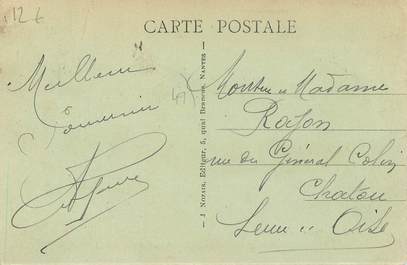 12€
CARTE POSTALE
Meilleur
Souvenir
49
J. NOZAIS, Editeur, 5, quai Brancas, NANTES
Monsieur et Madame
Rafon
rue du Général Colin
Chatou
Seine et Oise